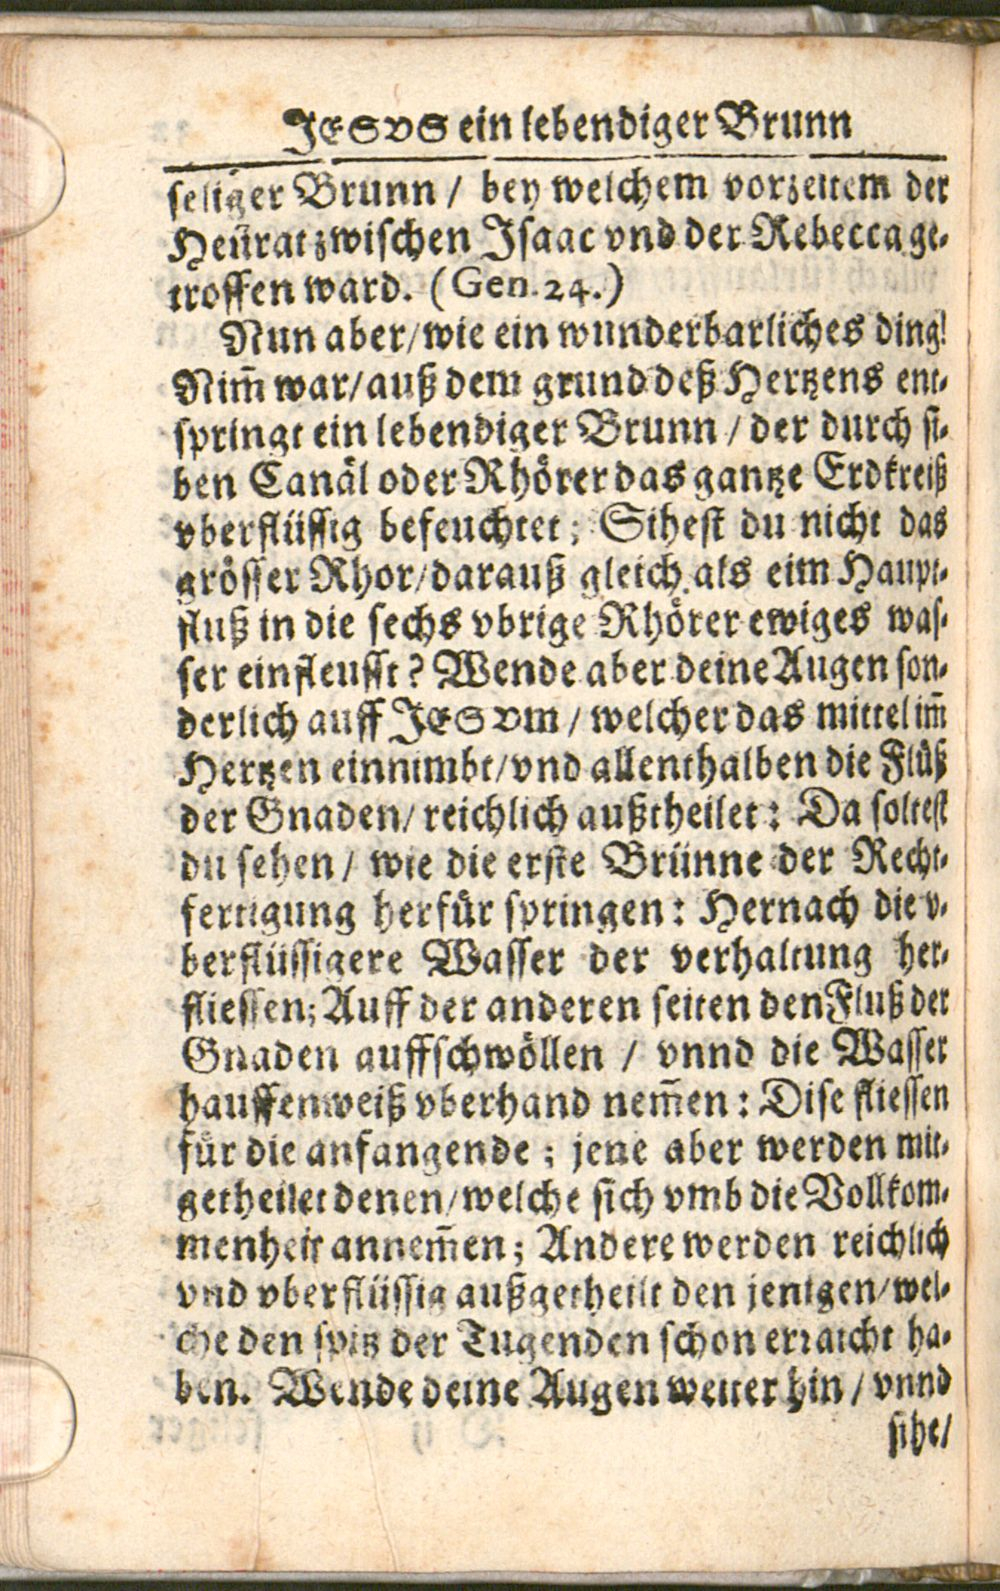 JESVS ein lebendiger Brunn
seliger Brunn / bey welchem vorzeitem der
Heürat zwischen Isaac vnd der Rebecca ge-
troffen ward. (Gen. 24.)
Nun aber/wie ein wunderbarliches ding!
Nim̃ war/auß dem grund deß Hertzens ent-
springt ein lebendiger Brunn / der durch si-
ben Canäl oder Rhörer das gantze Erdkreiß
vberflüssig befeuchtet; Sihest du nicht das
grösser Rhor/darauß gleich als eim Haupt-
fluß in die sechs vbrige Rhörer ewiges was-
ser einfleusst? Wende aber deine Augen son-
derlich auff JESVM / welcher das mittel im̃
Hertzen einnimbt/vnd allenthalben die Flüß
der Gnaden/ reichlich außtheilet: Da soltest
du sehen / wie die erste Brünne der Recht-
fertigung herfür springen: Hernach die v-
berflüssigere Wasser der verhaltung her-
fliessen; Auff der anderen seiten den Fluß der
Gnaden auffschwöllen / vnnd die Wasser
hauffenweiß vberhand nem̃en: Dise fliessen
für die anfangende ; jene aber werden mit-
getheilet denen/welche sich vmb die Vollkom-
menheit annem̃en; Andere werden reichlich
vnd vberflüssig außgetheilt den jenigen/wel-
che den spitz der Tugenden schon erraicht ha-
ben. Wende deine Augen weiter hin / vnnd
sihe/